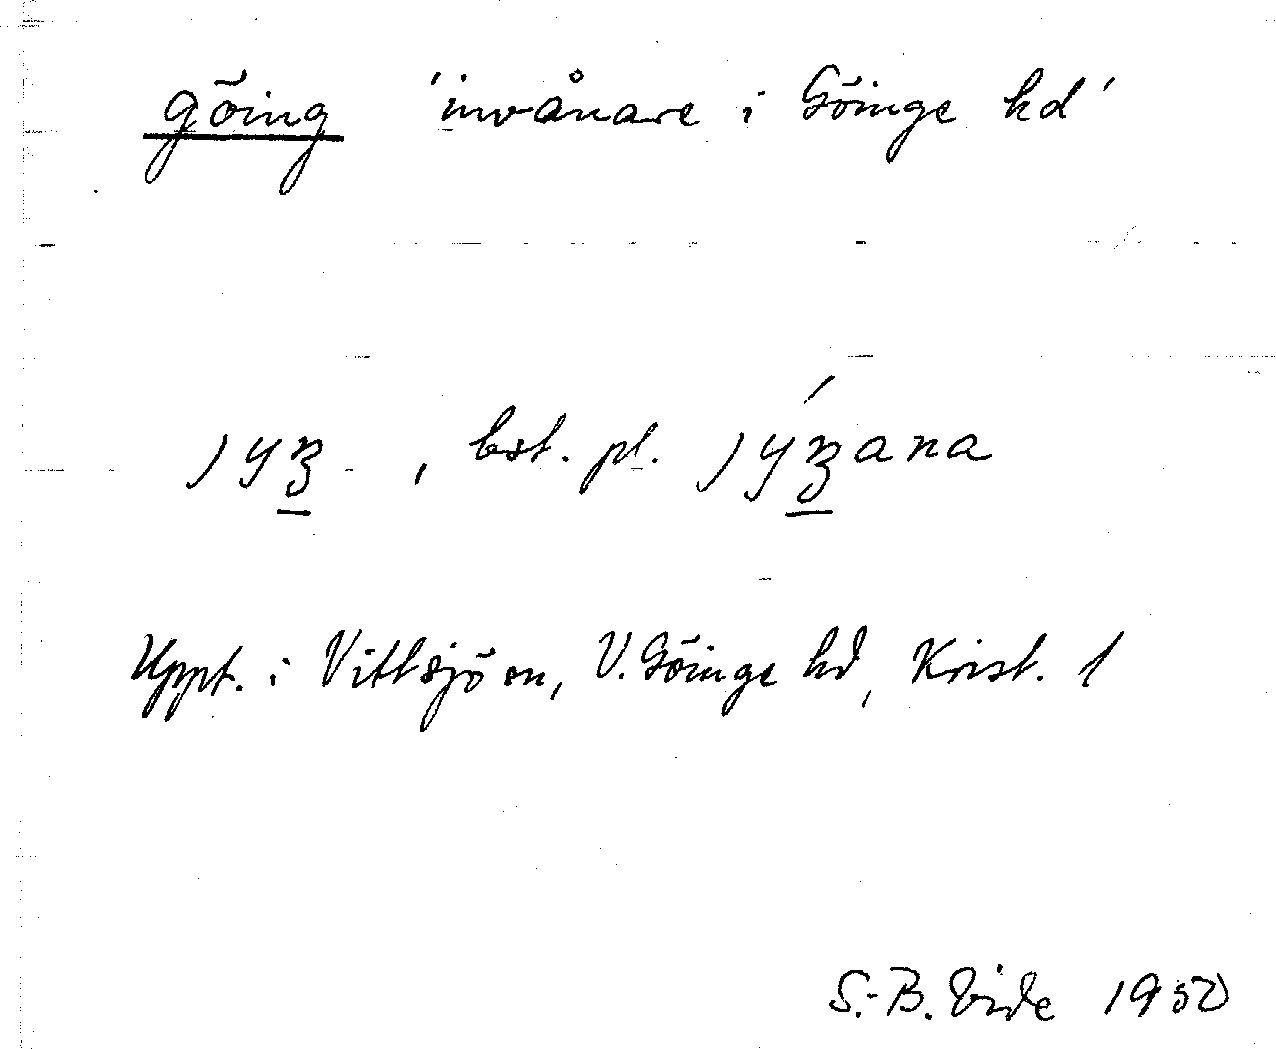 göing 'invånare i Göinge hd'
, bst. pl.
Uppt. i Vittsjö sn, V. Göinge hd, Krist. l
S.-B. Vide 1950